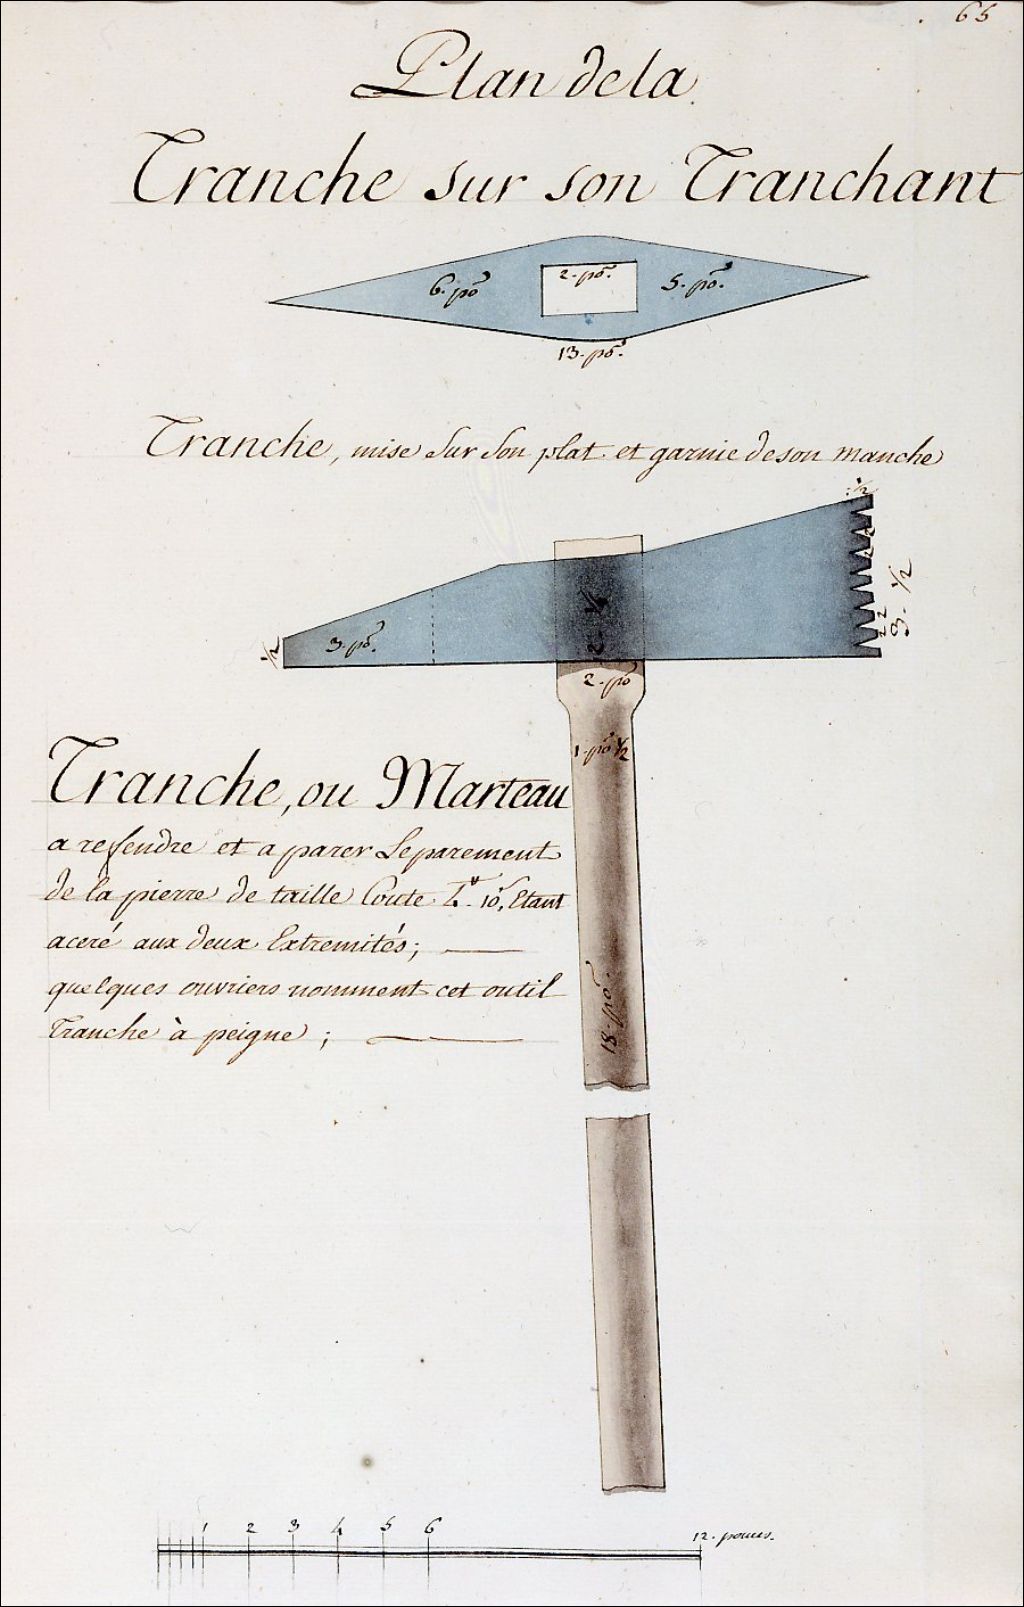 65
Plan de la
Tranche sur son Tranchant
6. po
2. po.
5. po.
13. po.
Tranche, mise sur son plat et garnie de son manche
1/2
2
2
3. 1/2
2
2
1/2
3. po.
2. 1/2
2. po
1. po 1/2
Tranche, ou Marteau
a refendre et a parer Le parement
de la pierre de taille Coute 10, Etant
aceré aux deux Extremités;
quelques ouvriers nomment cet outil
Tranche à peigne ;
18. po.
1 2 3 4 5 6 12. pouces.